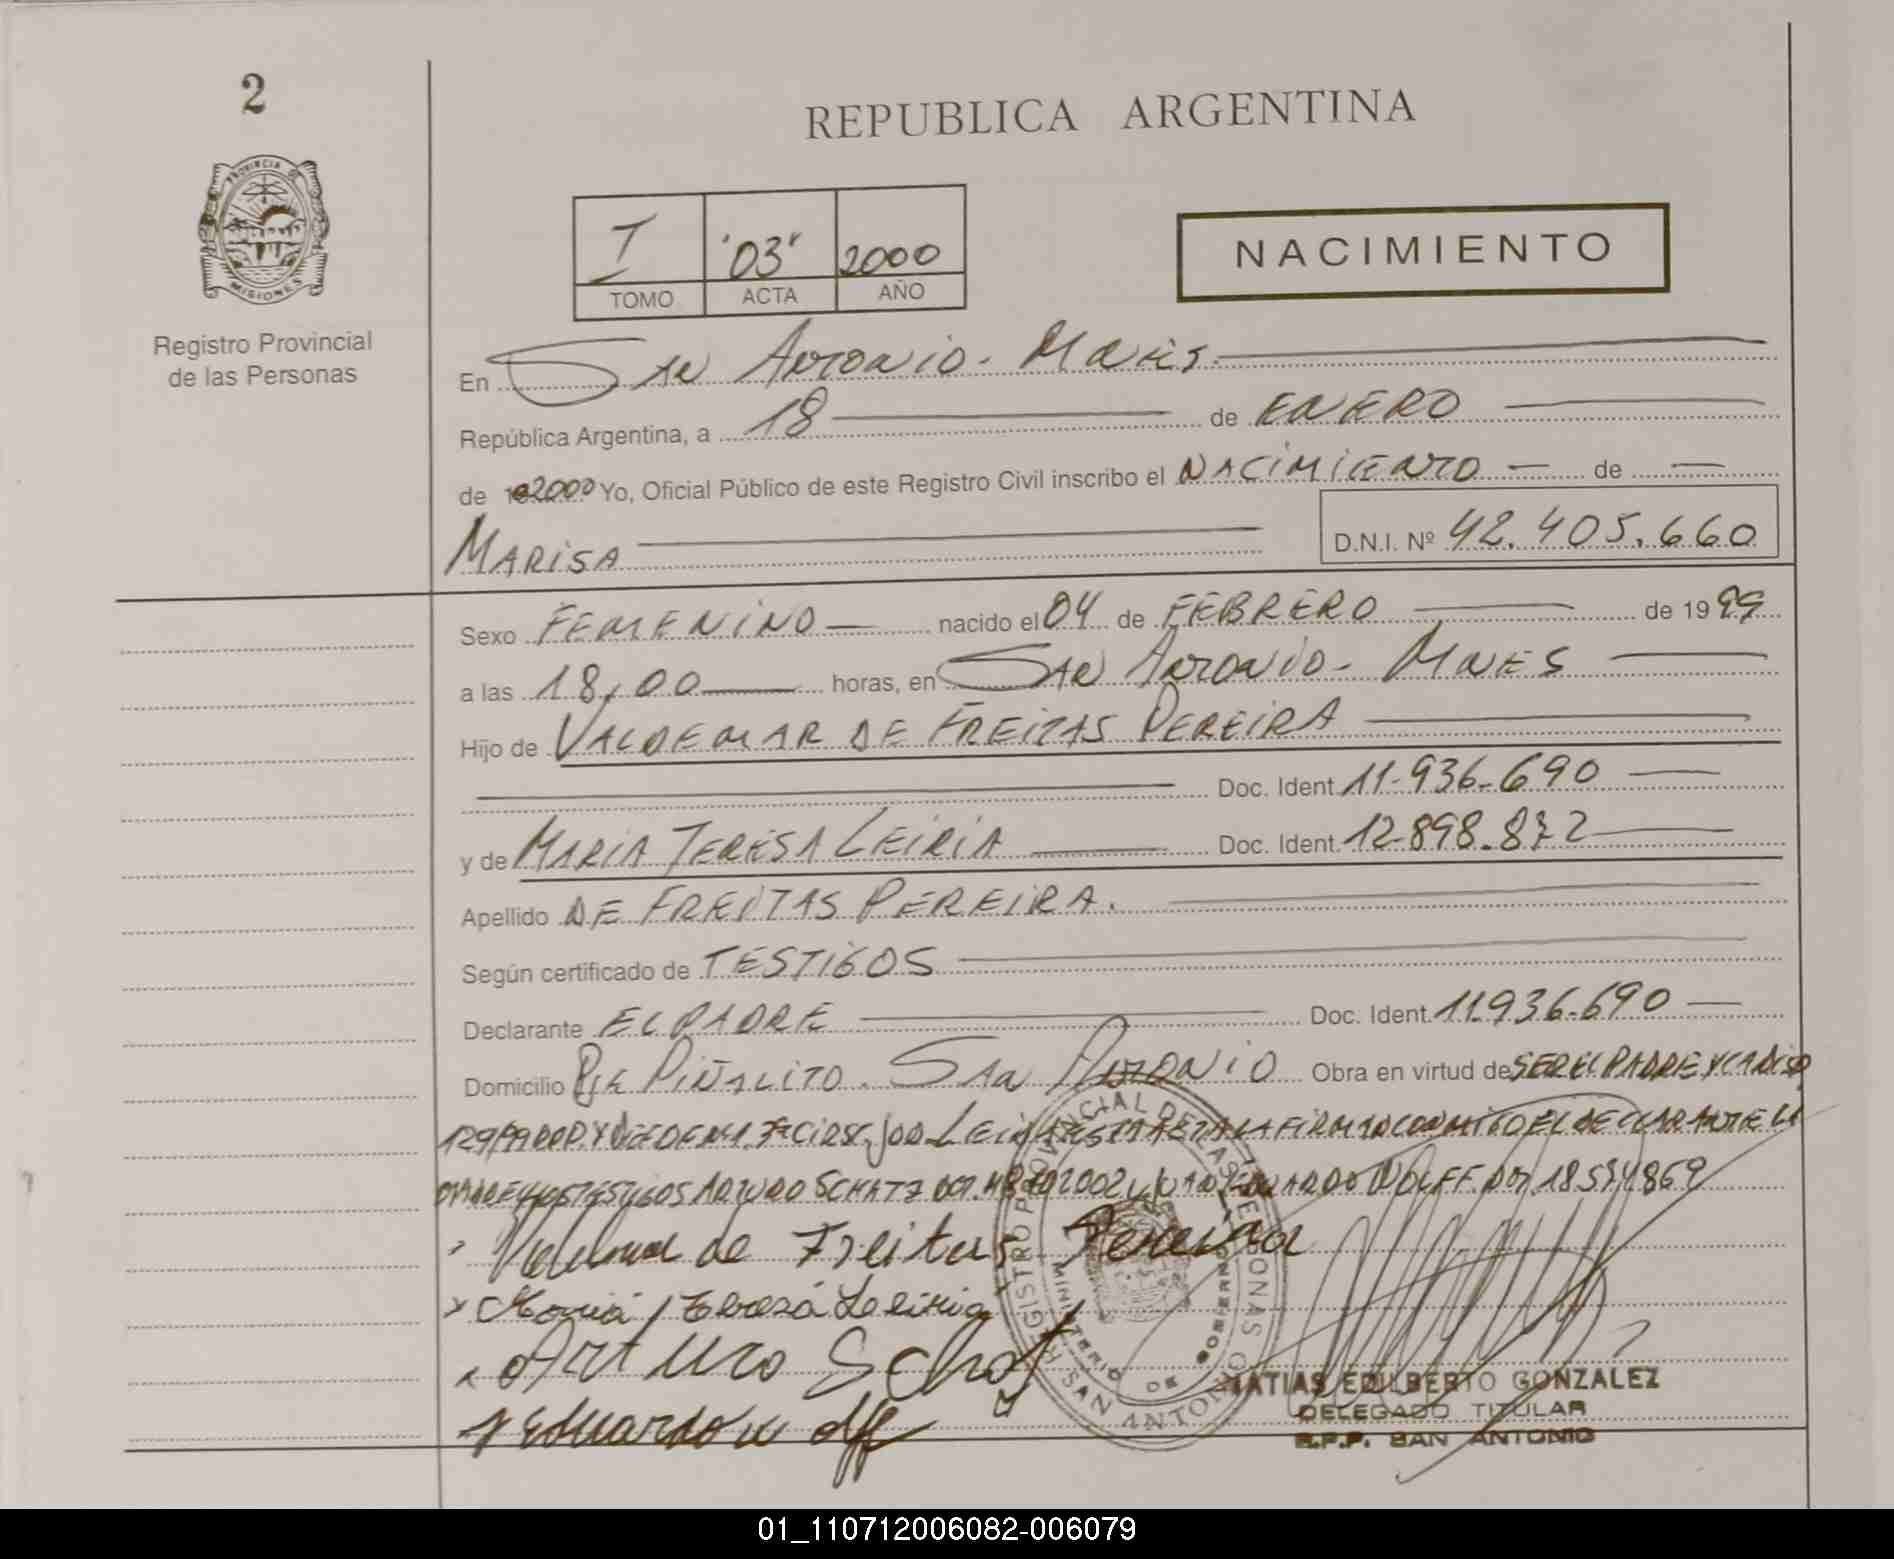 2
REPUBLICA ARGENTINA
PROVINCIA DE
MISIONES
Registro Provincial
de las Personas
I "03" 2000
TOMO ACTA AÑO
NACIMIENTO
En San Antonio - Mnes.
República Argentina, a 18 de ENERO
de 2000 Yo, Oficial Público de este Registro Civil inscribo el NACIMIENTO — de —
MARISA D.N.I. Nº 42.405.660
Sexo FEMENINO — nacido el 04 de FEBRERO de 1999
a las 18,00 horas, en SAN ANTONIO - MNES
Hijo de VALDEMAR DE FREITAS PEREIRA
Doc. Ident. 11.936.690
y de MARIA TERESA LEIRIA Doc. Ident. 12.898.872
Apellido DE FREITAS PEREIRA.
Según certificado de TESTIGOS
Declarante EL PADRE Doc. Ident. 11.936.690
Domicilio PJE PIÑALITO. SAN ANTONIO Obra en virtud de SER EL PADRE Y LA DISP
129/99 LEIDA ESTA ACTA LA FIRMAN CONMIGO EL DECLARANTE LA
MADRE Y LOS TESTIGOS ARTURO SCHATZ EDUARDO WOLFF
de Freitas Pereira
Maria Tereza Leiria
Arturo Schatz
Eduardo Wolff
REGISTRO PROVINCIAL DE LAS PERSONAS
MINISTERIO DE GOBIERNO
SAN ANTONIO
MATIAS EDILBERTO GONZALEZ
DELEGADO TITULAR
R.P.P. SAN ANTONIO
01_110712006082-006079